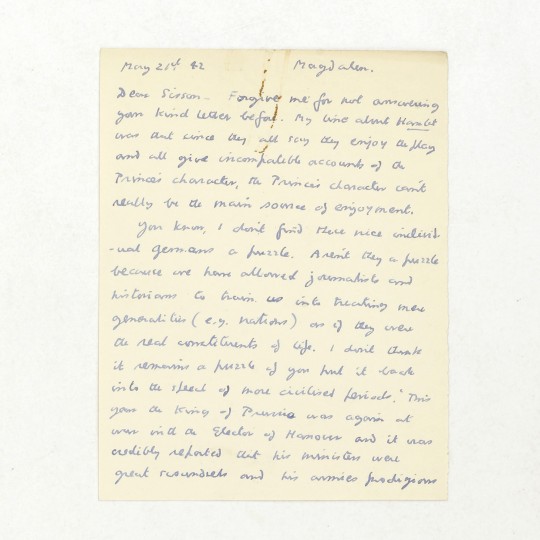 May 21st 42 Magdalen.
Dear Sisson – Forgive me for not answering
your kind letter before. My line about Hamlet
was that since they all say they enjoy the play
and all give incompatible accounts of the
Prince's character, the Prince's character can't
really be the main source of enjoyment.
You know, I don't find these nice individ-
-ual Germans a puzzle. Aren't they a puzzle
because we have allowed journalists and
historians to train us into treating mere
generalities (e.g. nations) as if they were
the real constituents of life. I don't think
it remains a puzzle if you put it back
into the speech of more civilised periods. "This
year the King of Prussia was again at
war with the Elector of Hanover and it was
credibly reported that his ministers were
great scoundrels and his armies prodigious